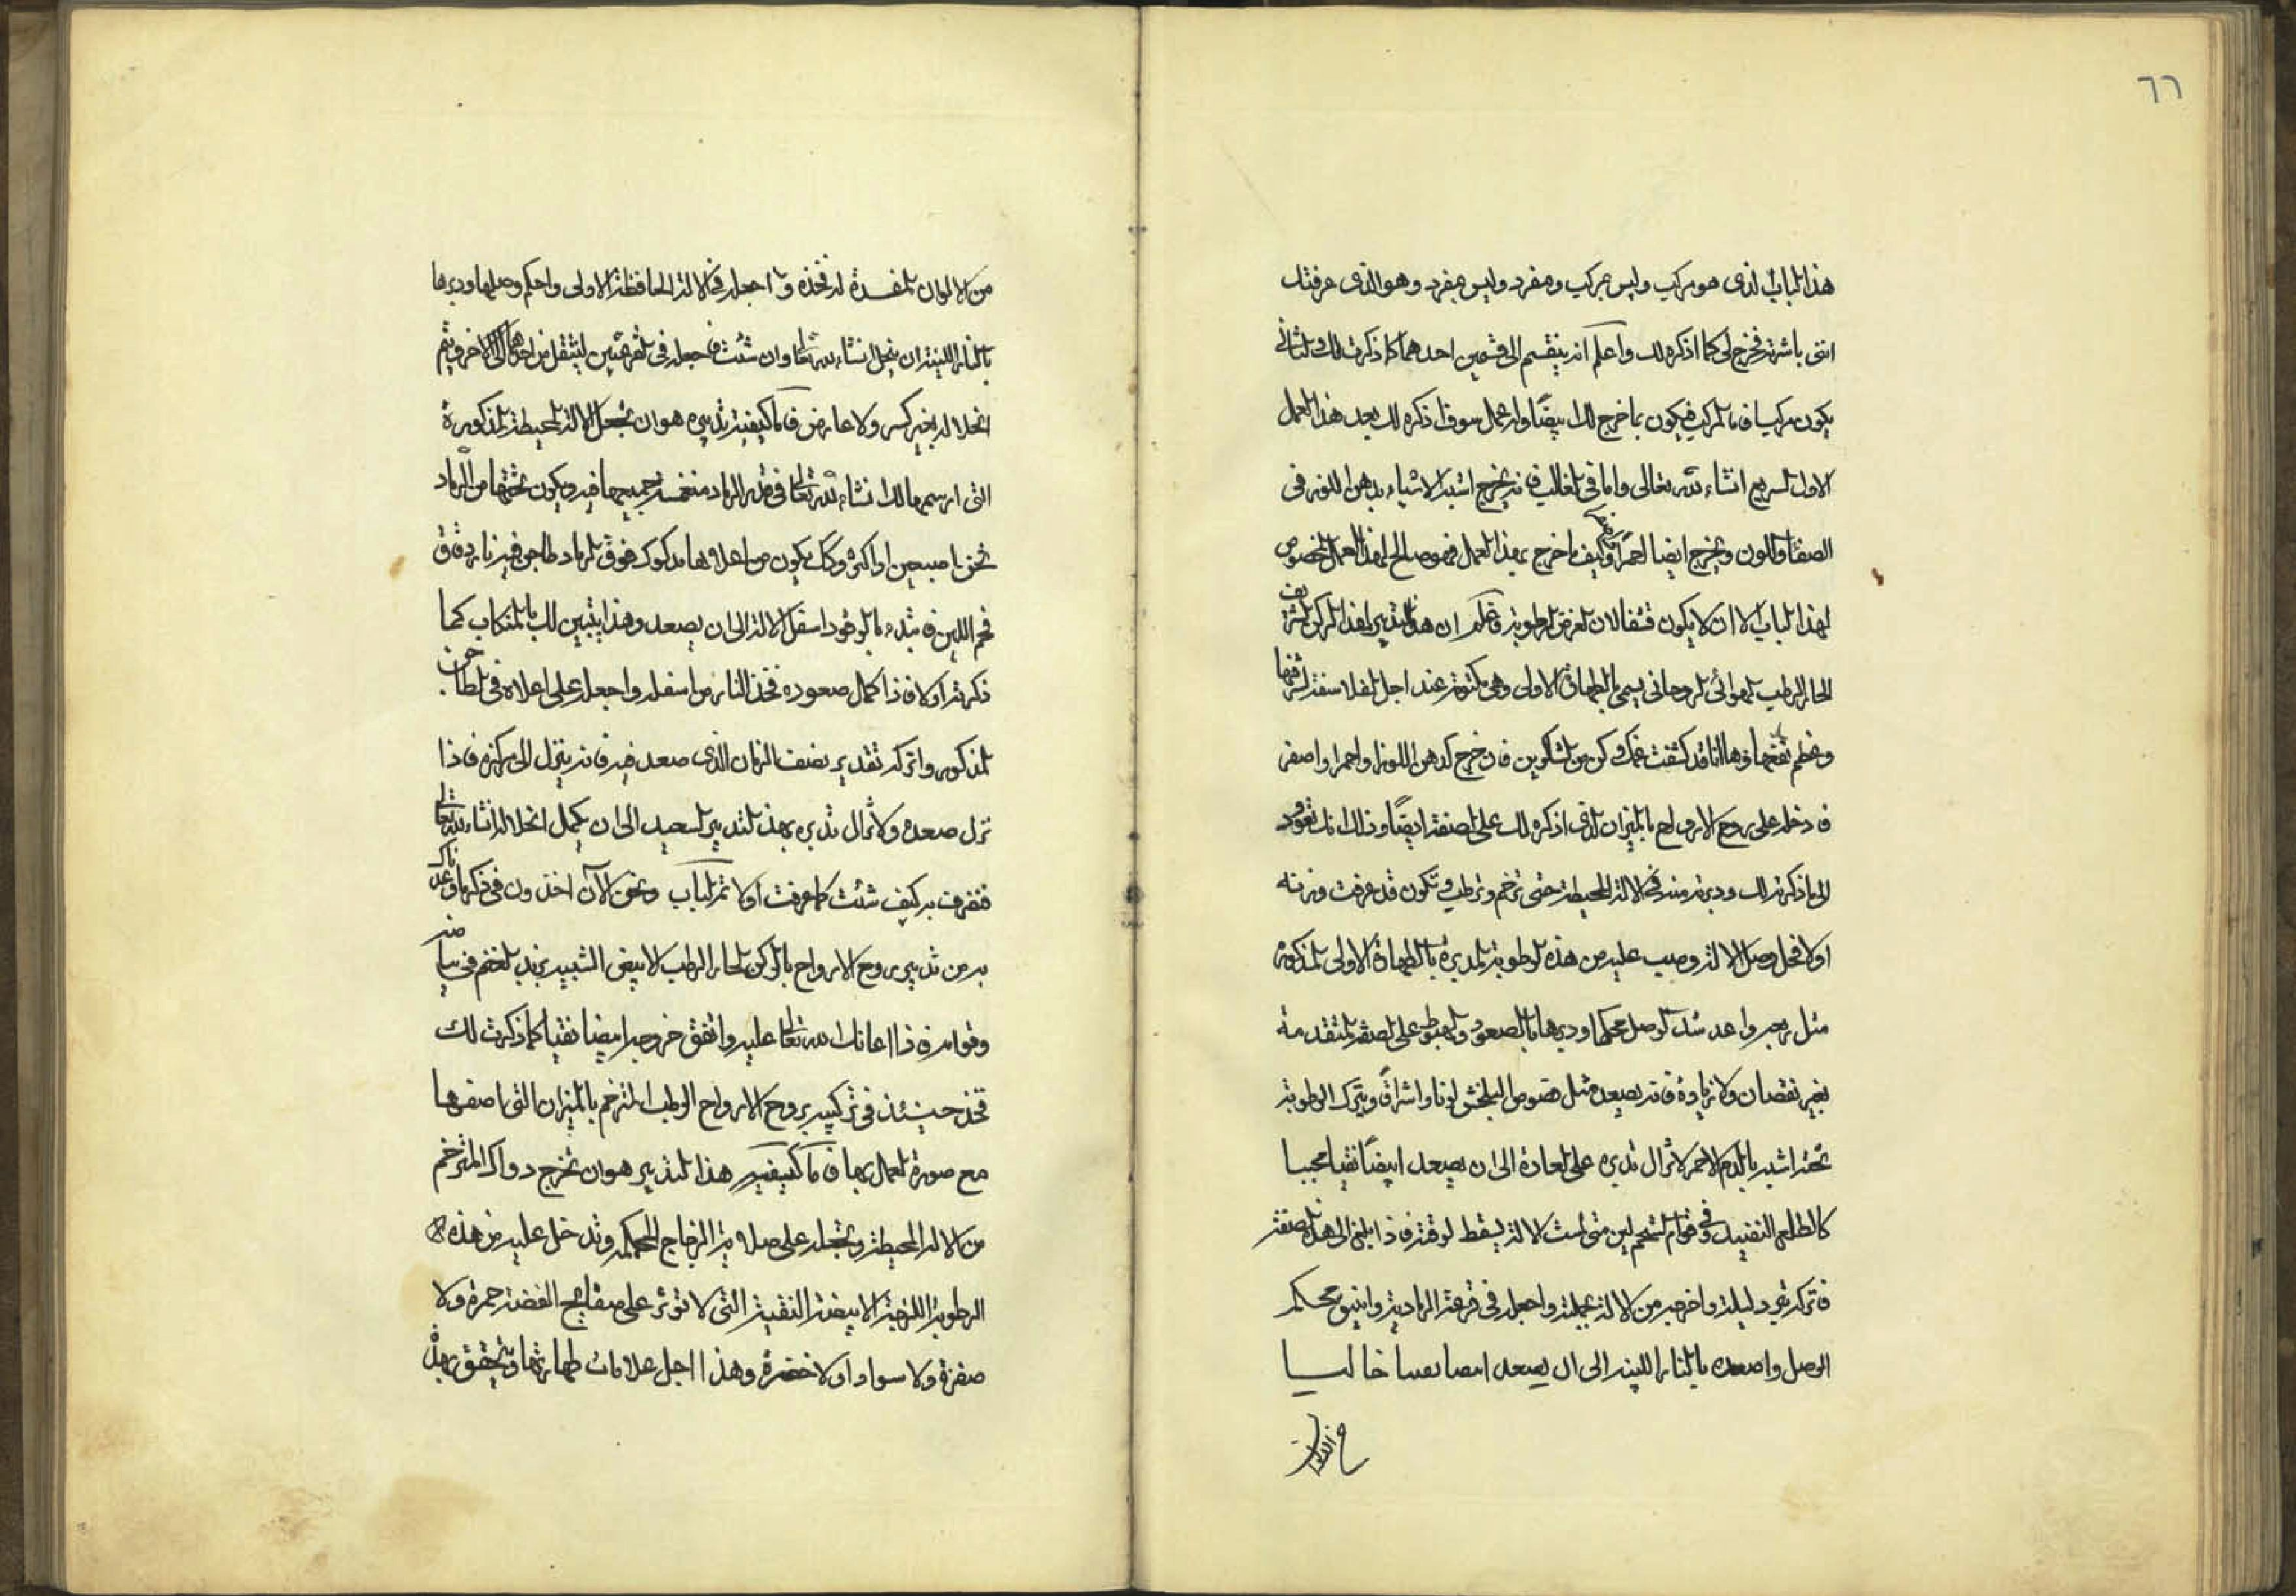 ٦٦
هذا الباب الذى هو مركب وليس بمركب ومفرد وليس بمفرد وهو الذى عرفتك
اننى باشرته فخرج لى كما اذكره لك واعلم انه ينقسم الى قسمين احدهما كما ذكرت لك والثانى
يكون مركبا فاما المركب فيكون مما خرج لك ابيضا وله عمل سوف اذكره لك بعد هذا العمل
الاول السريع انشاء الله تعالى واما فى الغالب فانه يخرج اشبه الاشياء بدهن اللوز فى
الصفا واللون ويخرج ايضا احمرا وكيف ما خرج بهذا العمل فهو صالح لهذا العمل المخصوص
لهذا الباب الا ان لا يكون قشفا لان الغرض الرطوبة واعلم ان هذا التدبير لهذا الركن الشريف
الحار الرطب الهوائى الروحانى يسمى بالطهارة الاولى وهى مكتومة عند اجل الفلاسفة لشرفها
وعظم نفعها وها انا قد كشفت عنها وكن من الشاكرين فان خرج كدهن اللوز او احمر او اصفر
فادخله على روح الارواح بالميزان الذى اذكره لك على الصفة ايضا وذلك انك تعود
الى ما ذكرته لك ودبرته منه فى الالة المحيطة حتى ترخم وترطب وتكون قد عرفت وزنه
اولا فحل وصل الالة وصب عليه من هذه الرطوبة المدبرة بالطهارة الاولى المذكورة
مثل ربعه واعد شد الوصل محكما ودبرها بالصعود والهبوط على الصفة المتقدمة
بغير نقصان ولا زيادة فانه يصعد مثل فصوص البلخش لونا واشراقا ويترك الرطوبة
تحته اشبه بالدم الاحمر لا تزال تدبره على العادة الى ان يصعد ابيضا نقيا عجيبا
كالطلع النضيد وفى قوام الشحم لين متى لمست الالة يسقط لوقته فاذا بلغ الى هذه الصفة
فاتركه يبرد ليلة واخرجه من الالة بجملته واجعله فى قرعة الرمادية وانبيق محكم
الوصل واصعده بالنار اللينه الى ان يصعد ابيضا نقيا خالصا
من الالوان
من الالوان المفسدة له فخذه واجعله فى الالة الحافظة الاولى واحكم وصلها ودبرها
بالنار اللينة ان ينحل انشاء الله تعالى وان شئت فاجعله فى القرعتين لينتقل من احدهما الى الاخر ويتم
انحلاله بغير كسر ولا عارض فاما كيفية تدبيره هو ان تجعل الالة المحيطة المذكورة
التى ارسمها لك انشاء الله تعالى فى قدر الرماد منغمسة جميعها فيه ويكون تحتها من الرماد
ثخن اصبعين او اكثر وكذلك يكون من اعلاه بها مدكوك فوق الرماد طاجن فيه نار دقاق
فحم اللين فابتدء بالوقود اسفل الالة الى ان يصعد وهذا يتبين لك بالمنكاب كما
ذكرته اولا فاذا كمل صعوده فخذ النار من اسفله واجعله على اعلاه فى الطاجن
المذكور واتركه تقدير نصف الزمان الذى صعد فيه فانه ينزل الى مركزه فاذا
نزل صعده ولا تزال تدبره بهذا التدبير السعيد الى ان يكمل انحلاله انشاء الله تعالى
فتصرف به كيف شئت كما عرفت اولا تم الباب ونحن الآن اخذون فى ذكر ما وعدناك
به من تدبير روح الارواح بالركن الحار الرطب الابيض الشبيه بزبد الغنم فى بياضه
وقوامه فاذا اعانك الله تعالى عليه واتفق خروجه ابيضا نقيا كما ذكرت لك
فخذ حينئذ فى تركيبه بروح الارواح الرطب المترخم بالميزان التى اصفها
مع صورة العمل بها فاما كيفية هذا التدبير هو ان تخرج دواك المترخم
من الالة المحيطة وتجعله على صلاية الزجاج المحكمه وتدخل عليه من هذه
الرطوبة اللزجة الابيضة النقية التى لا توثر على صفايح الفضة حمرة ولا
صفرة ولا سواد اولا خضرة وهذا اجل علامات طهارتها ويتحقق بهذا